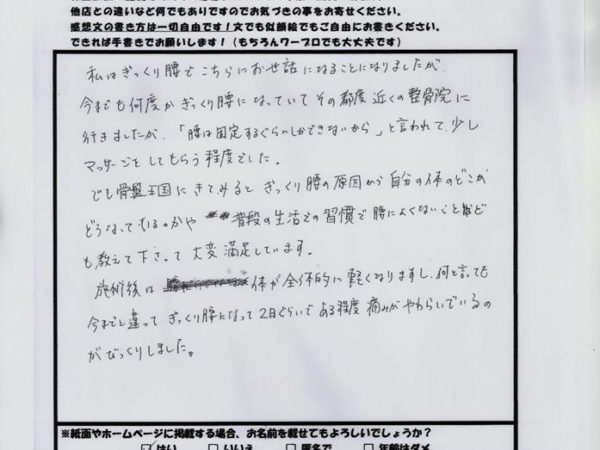 他店との違いなど何でもありですのでお気づきの事をお寄せください。
感想文の書き方は一切自由です!文でも似顔絵でもご自由にお書きください。
できれば手書きでお願いします!(もちろんワープロでも大丈夫です)
私はぎっくり腰でこちらにお世話になることになりましたが、
今までも何度かぎっくり腰になっていてその都度近くの整骨院に
行きましたが、「腰は固定するぐらいしかできないから」と言われて、少し
マッサージをしてもらう程度でした。
でも骨盤王国にきてみるとぎっくり腰の原因から自分の体のどこが
どうなっているのかや 普段の生活での習慣で腰によくないことなど
も教えて下さって大変満足しています。
施術後は 体が全体的に軽くなりますし、何と言っても
今までと違ってぎっくり腰になって2日ぐらいである程度痛みがやわらいでいるの
がびっくりしました。
※紙面やホームページに掲載する場合、お名前を載せてもよろしいでしょうか?
はい □ いいえ □ 匿名で □ 年齢はダメ